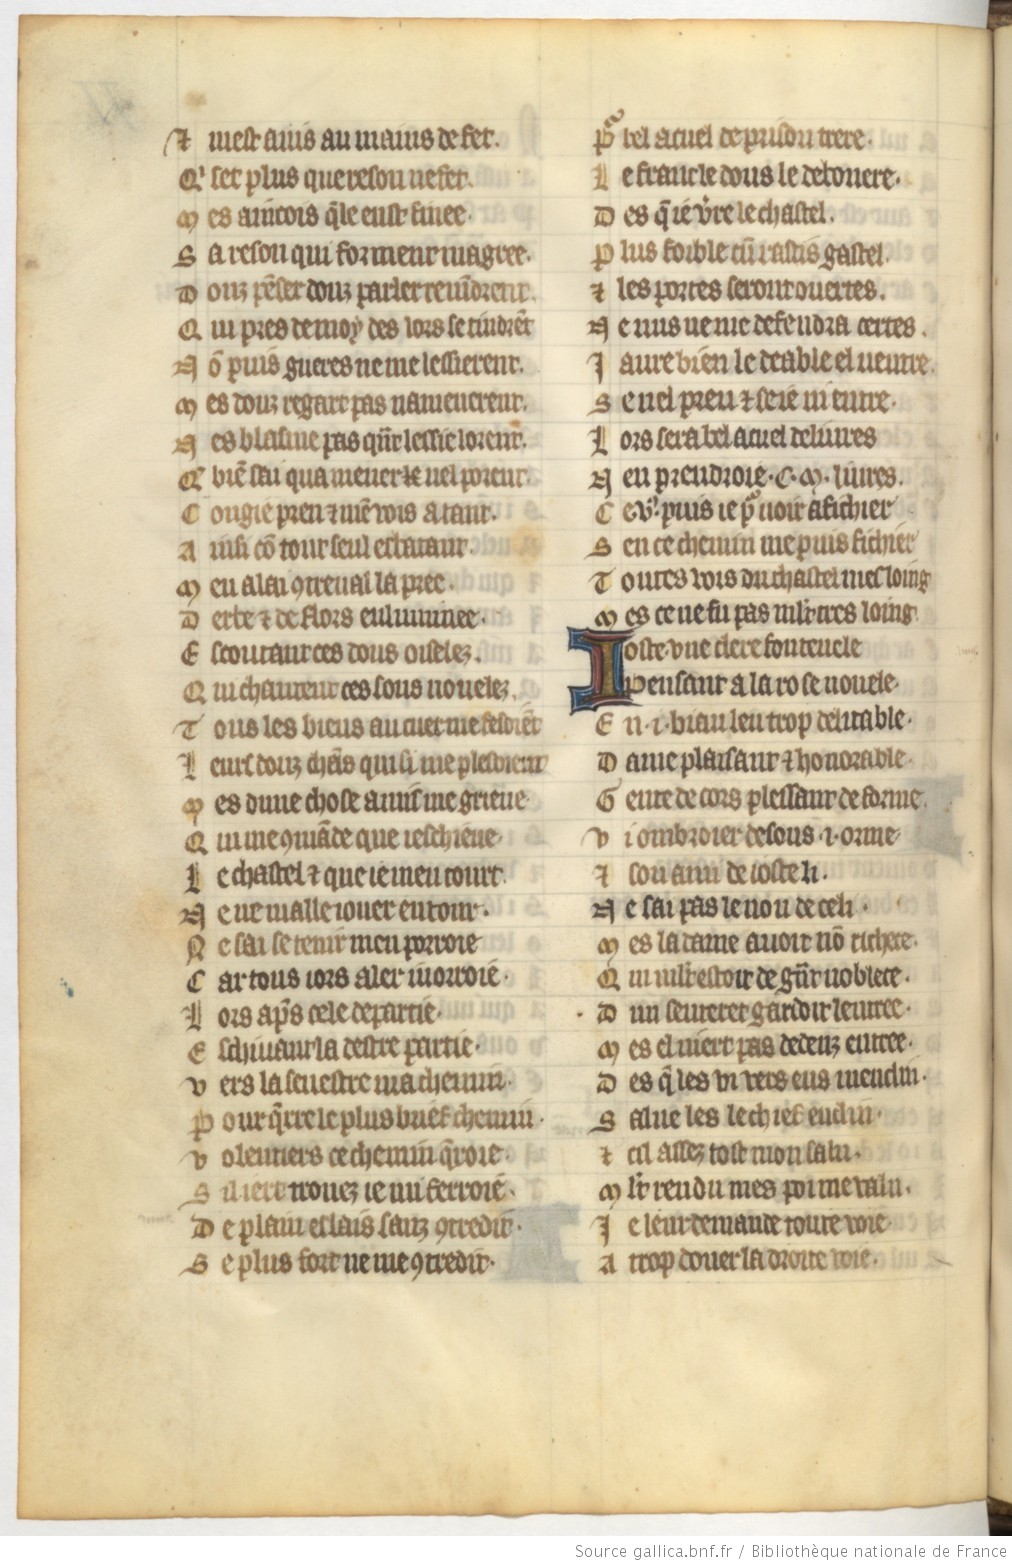 ⁊ mest auis au mains de fet.
Q' set plus que reson ne fet.
Mes aincois q̃le eust finee.
Sa reson qui forment magree.
Douz pẽser douz parler reuindrent.
Qui pres de moy des lors se tindrẽt
Nõ puis gueres ne me lessierent.
Mes douz regart pas namenerent.
Nes blasme pas
Q' biẽ sai qua mener le nel porent.
Congie pren ⁊ mẽ vois atant.
Ainsi cõ tout seul esbatant.
Men alai ꝯtreual la pree.
Derbe ⁊ de flors enluminee.
Escoutant ces dous oiselez.
Qui chantent ces sons nouelez.
Tous les biens au cuer me fesoiẽt
Leurs douz chãs qui si me plesoient
Mes dune chose auins me grieue
Qui me ꝯmãde que ieschieue
Le chastel ⁊ que ie men tourt.
Ne ne maille iouer entour.
Ne sai se tenir men porroie
Car tous iors aler i uorroie.
Lors ap̃s cele departie.
Eschiuant la destre partie.
Vers la senestre machemin.
Pour q̃rre le plus brief chemin.
Volentiers ce chemin q̃roie.
Sil iert trouez ie mi ferroie.
De plain eslais sanz ꝯtredit.
Se plus fort ne me ꝯtredit.
P͛ bel acuel de prison trere.
Le franc le dous le debonere.
Des q̃ ie v͛re le chastel.
Plus foible cũ rastis gastel.
⁊ les portes seront ouertes.
Ne nus ne me defendra certes.
Jaure bien le deable el uentre.
Se nel preu ⁊ se ie ni entre.
Lors sera bel acuel deliures
Nen prendroie .C.M. liures.
Ce v͛ puis ie p͛ uoir afichier
Sen ce chemin me puis fichier
Toutes vois du chastel mesloing
Mes ce ne fu pas mlt̃ tres loing
Joste vne clere fontenele
Pensant a la rose nouele.
En .i. biau leu trop delitable.
Dame plaisant ⁊ honorable.
Gente de cors plessant de forme
Vi ombroier desous .i. orme
⁊ son ami de ioste li.
Ne sai pas le non de celi.
Mes la dame auoit nõ richece.
Qui mlt̃ estoit de gñt noblece.
Dun senteret gardoit lentree.
Mes el niert pas dedenz entree.
Des q̃ les vi vers eus menclin.
Salue les le chief enclin.
⁊ cil assez tost mon salu.
Mlt̃ rendu mes poi me valu.
Je leur demande toute voie
A trop douer la droite voie.
Source gallica.bnf.fr / Bibliothèque nationale de France